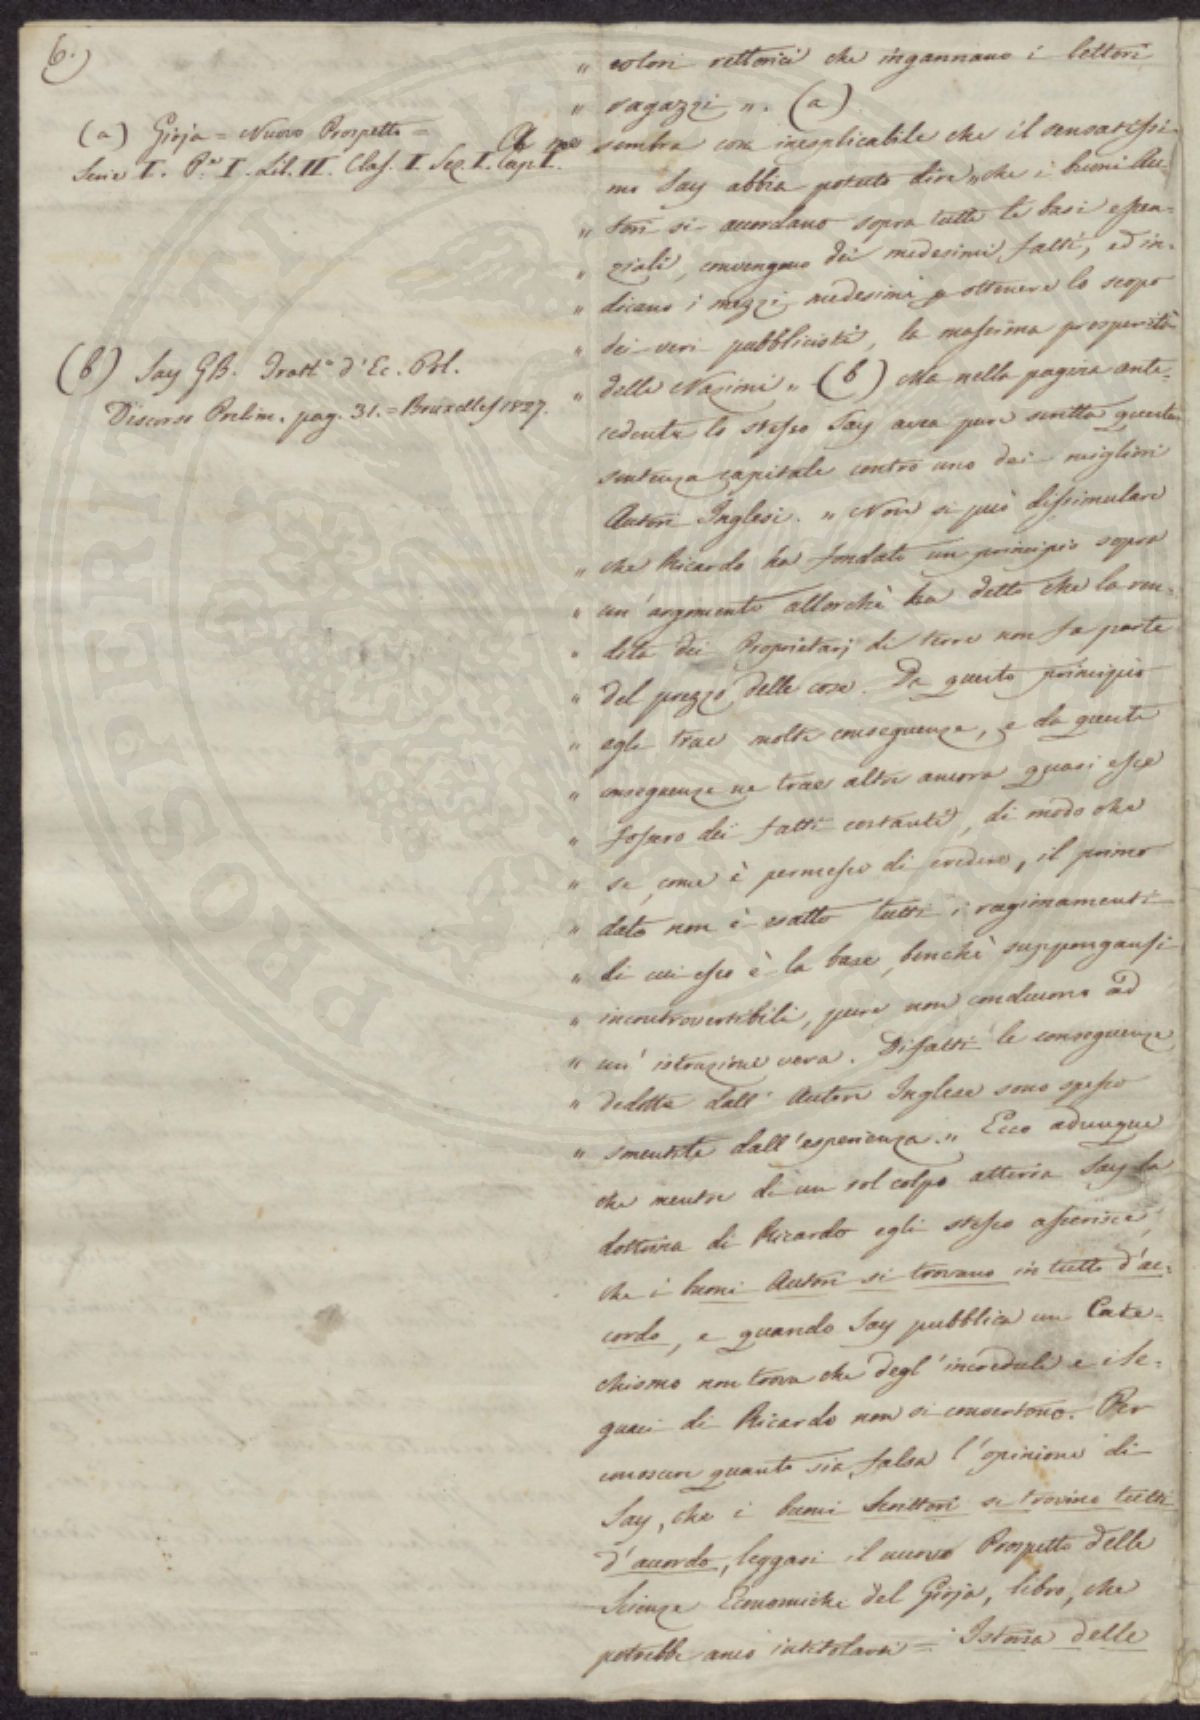 6.)
(a) Gioja = Nuovo Prospetto =
Serie I. P.e I. Lib. II. Clas. I. Sez. I. Cap. I.
(b) Say G B. Tratt.o d'Ec. Pol.
Discorso Prelim. pag. 31. = Bruxelles 1827.
" colori rettorici che ingannano i lettori
" ragazzi ". (a)
sembra cosa inesplicabile che il sensatissi-
mo Say abbia potuto dire " che i buoni Au-
" tori si accordano sopra tutte le basi essen-
" ziali, convengono dei medesimi fatti, ed in-
" dicano i mezzi medesimi p ottenere lo scopo
" dei veri pubblicisti, la massima prosperità
" delle Nazioni " (b) Ma nella pagina ante-
cedente lo stesso Say avea pure scritta questa
sentenza capitale contro uno dei migliori
Autori Inglesi. " Non si può dissimulare
" che Ricardo ha fondato un principio sopra
" un' argomento allorchè ha detto che la ren-
" dita dei Proprietarj di terre non fa parte
" del prezzo delle cose. Da questo principio
" egli trae molte conseguenze, e da queste
" conseguenze ne trae altre ancora quasi esse
" fossero dei fatti costanti, di modo che
" se, come è permesso di credere, il primo
" dato non è esatto tutti i ragionamenti
" di cui esso è la base, benchè suppongansi
" incontrovertibili, pure non conducono ad
" un' istruzione vera. Difatti le conseguenze
" dedotte dall' Autore Inglese sono spesso
" smentite dall'esperienza. " Ecco adunque
che mentre di un sol colpo atterra Say la
dottrina di Ricardo egli stesso asserisce,
che i buoni Autori si trovano in tutto d'ac-
cordo, e quando Say pubblica un Cate-
chismo non trova che degl'increduli e i se-
guaci di Ricardo non si convertono. Per
conoscere quanto sia falsa l'opinione di
Say, che i buoni Scrittori si trovino tutti
d'accordo, leggasi il nuovo Prospetto delle
Scienze Economiche del Gioja, libro, che
potrebbe anco intitolarsi = Istoria delle